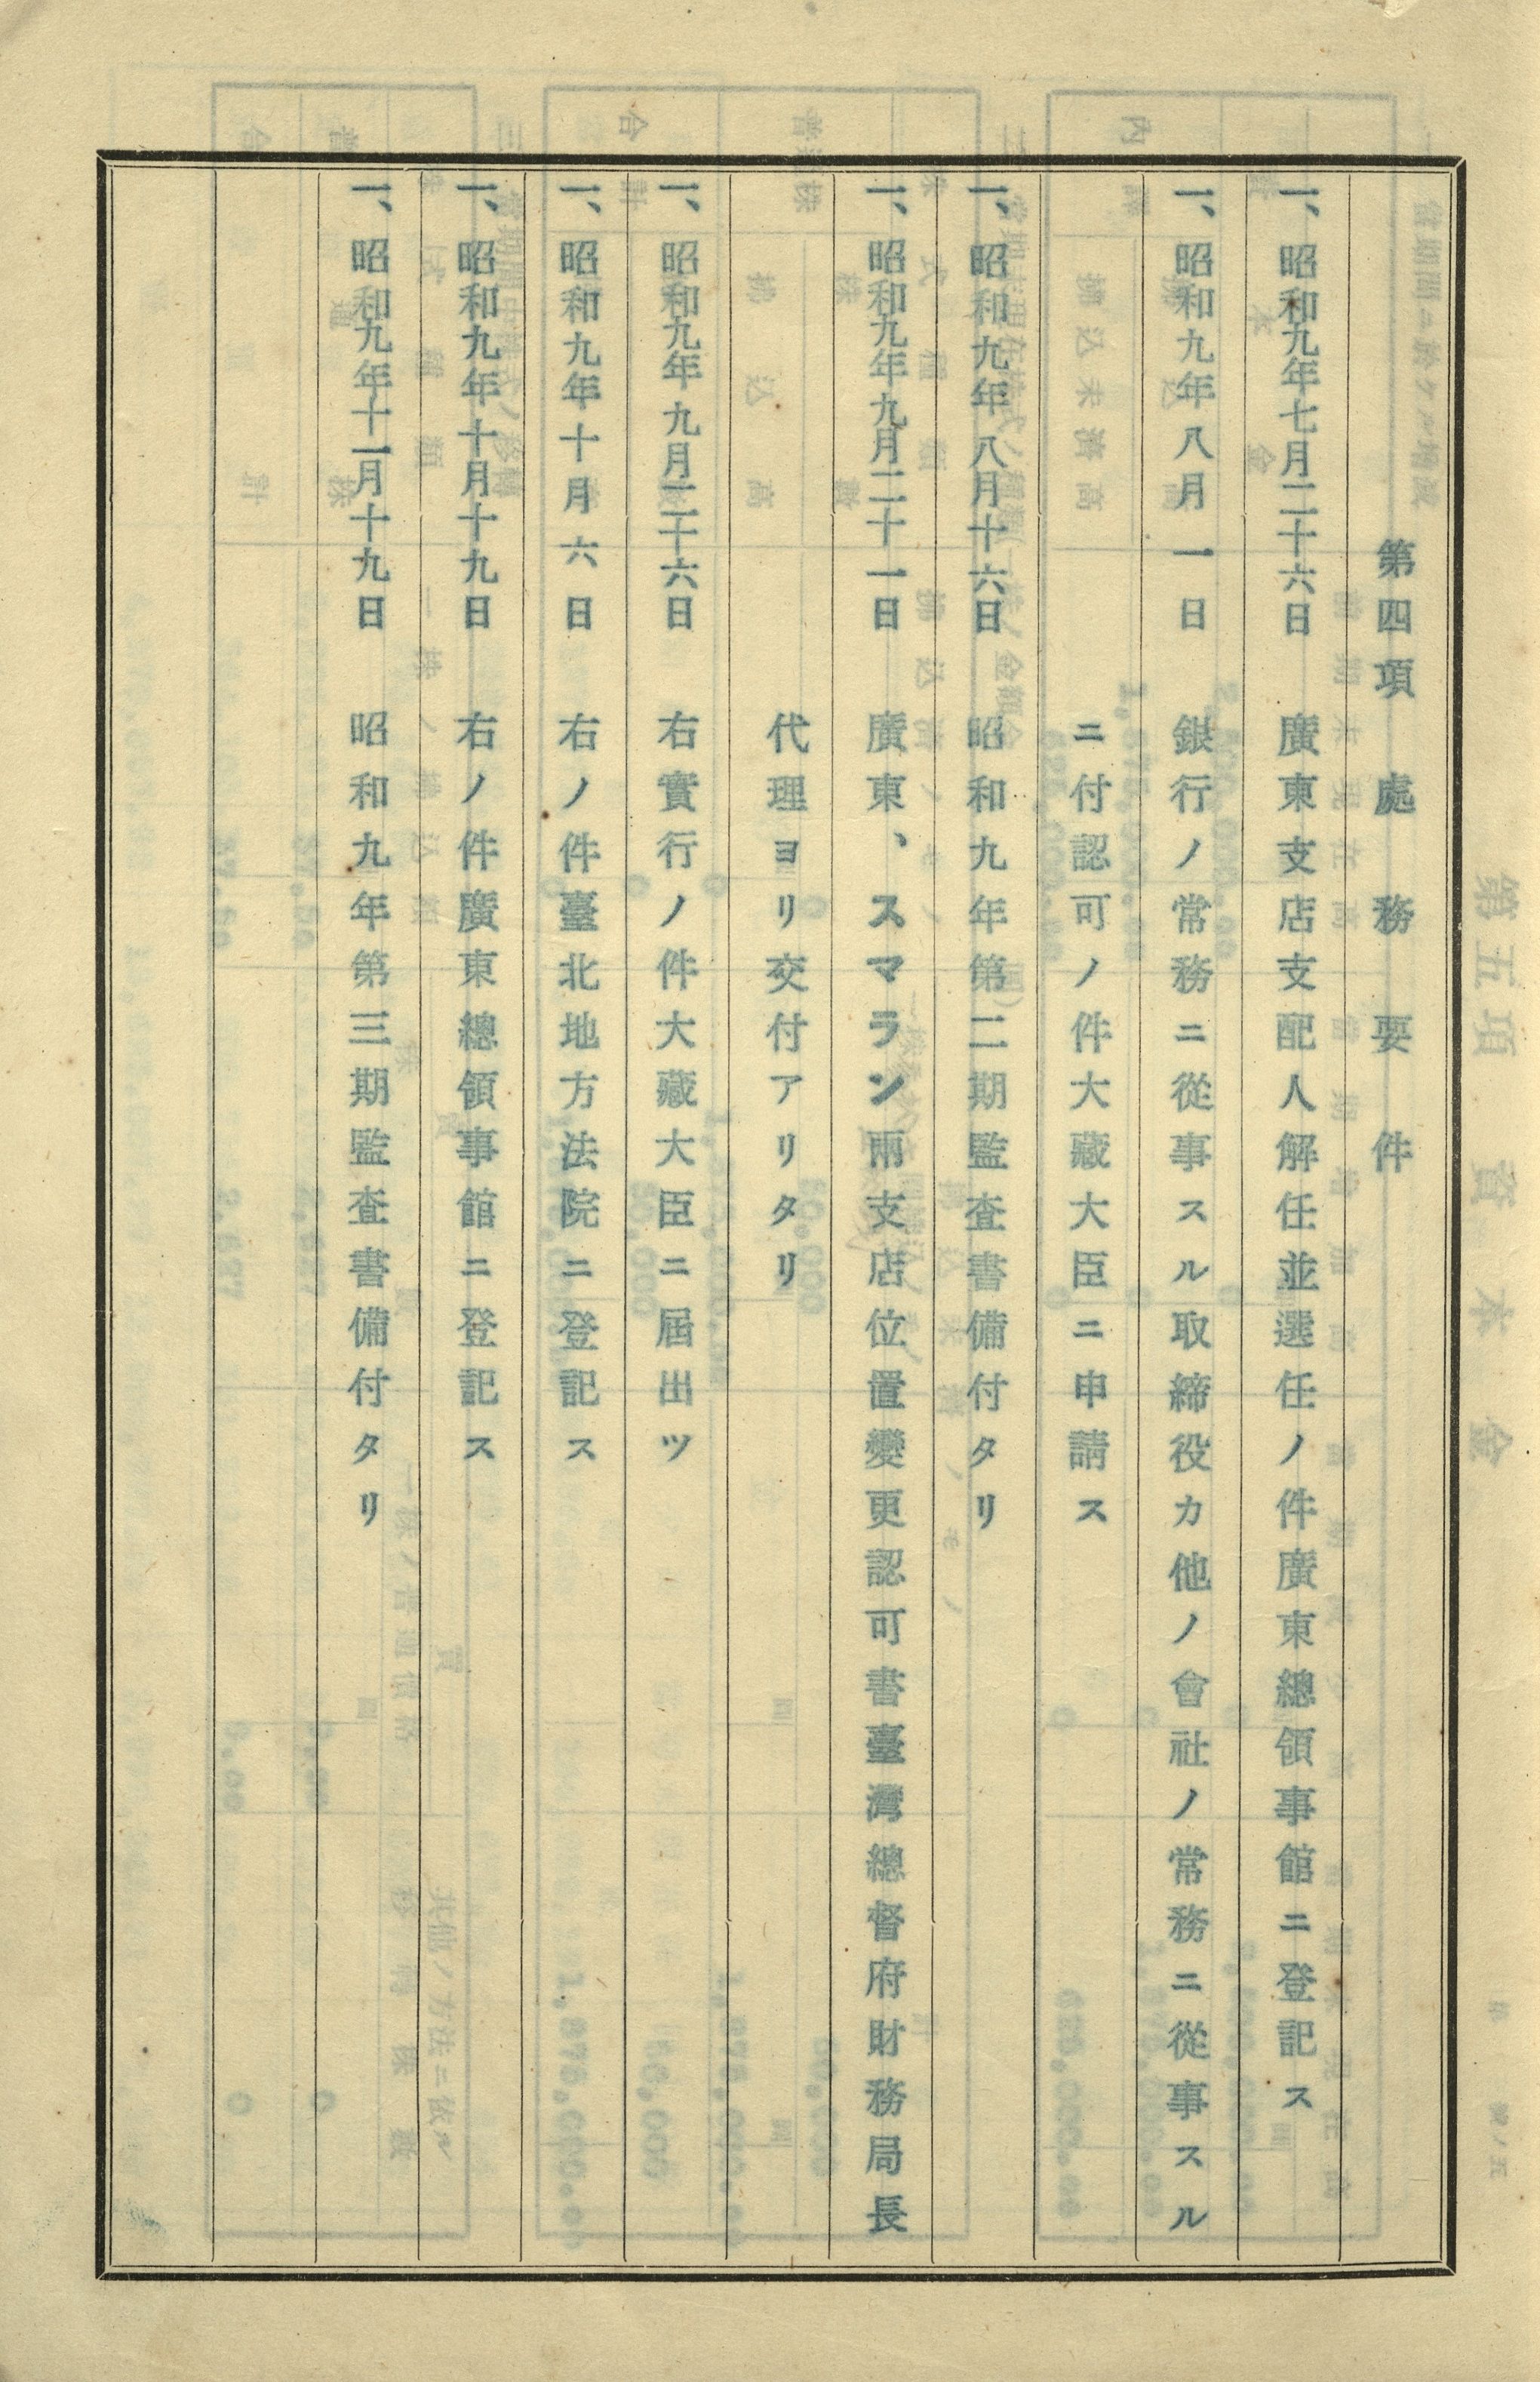 第四項 處務要件
一、昭和九年七月二十六日 廣東支店支配人解任並選任ノ件廣東總領事館ニ登記ス
一、昭和九年八月一日 銀行ノ常務ニ從事スル取締役カ他ノ會社ノ常務ニ從事スル
ニ付認可ノ件大藏大臣ニ申請ス
一、昭和九年八月十六日 昭和九年第二期監査書備付タリ
一、昭和九年九月二十一日 廣東、スマラン兩支店位置變更認可書臺灣總督府財務局長
代理ヨリ交付アリタリ
一、昭和九年九月二十六日 右實行ノ件大藏大臣ニ屆出ツ
一、昭和九年十月六日 右ノ件臺北地方法院ニ登記ス
一、昭和九年十月十九日 右ノ件廣東總領事館ニ登記ス
一、昭和九年十一月十九日 昭和九年第三期監査書備付タリ